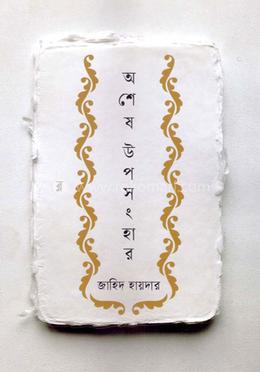 অশেষ উপসংহার
জাহিদ হায়দার